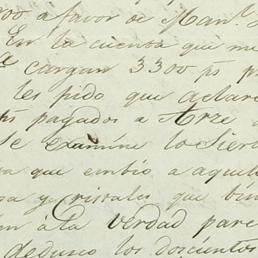 000 a favor de Man.
En la cuenta que me
cargan 3300 ps p
les pido que aclare
ps pagados a Arze
se examine lo Sier
a que embió a aquel
sa y cristales que
en a la verdad pare
deduzco los doscientos